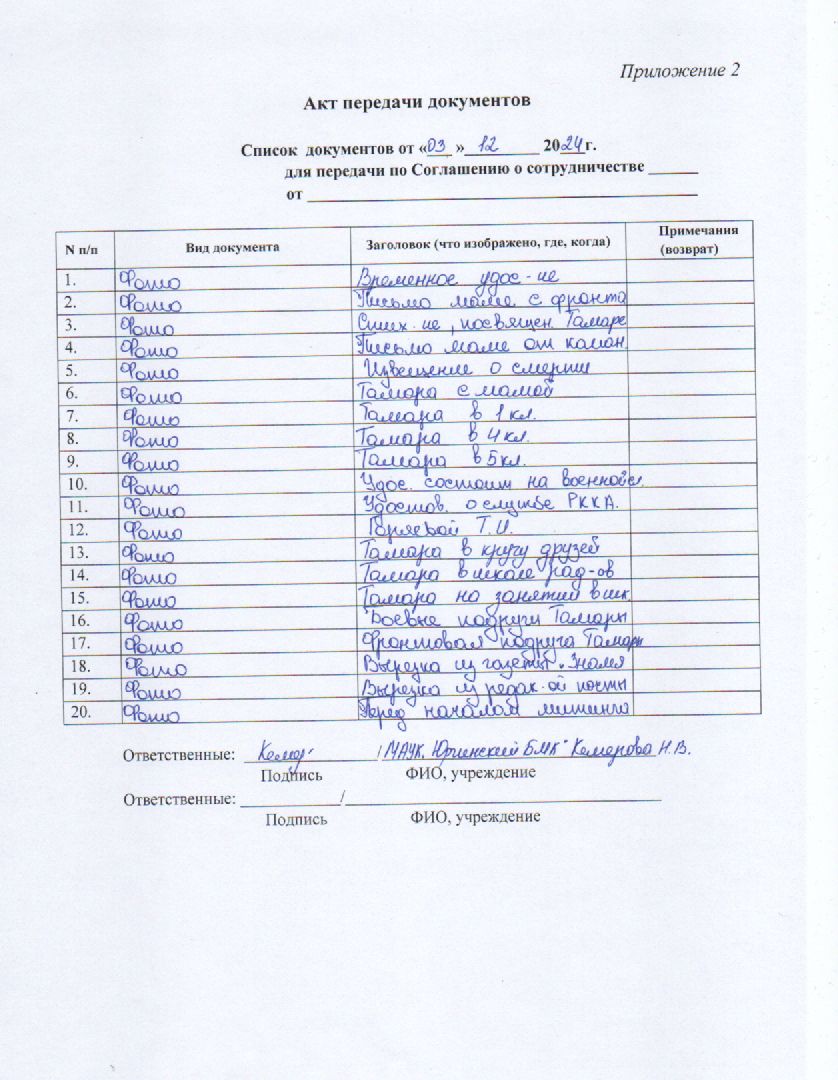 Приложение 2
Акт передачи документов
Список документов от «03 » 12 2024г.
для передачи по Соглашению о сотрудничестве ______
от ______
N п/п Вид документа Заголовок (что изображено, где, когда) Примечания (возврат)
1. Фото Временное удос-ие
2. Фото Письмо маме с фронта
3. Фото Стих-ие, посвящен. Тамаре
4. Фото Письмо маме от коман.
5. Фото Извещение о смерти
6. Фото Тамара с мамой
7. Фото Тамара в 1 кл.
8. Фото Тамара в 4 кл.
9. Фото Тамара в 5 кл.
10. Фото Удос. состоит на военной
11. Фото Удостов. о службе РККА.
12. Фото Т.И.
13. Фото Тамара в кругу друзей
14. Фото Тамара в школе рад-ов
15. Фото Тамара на занятии в шк.
16. Фото Боевые подруги Тамары
17. Фото Фронтовая подруга Тамары
18. Фото Вырезка из газеты "Знамя
19. Фото Вырезка из редак-ой почты
20. Фото Перед началом митинга
Ответственные: /МАУК "Юргинский БМК" Кемерова Н.В.
Подпись ФИО, учреждение
Ответственные: ______/______
Подпись ФИО, учреждение